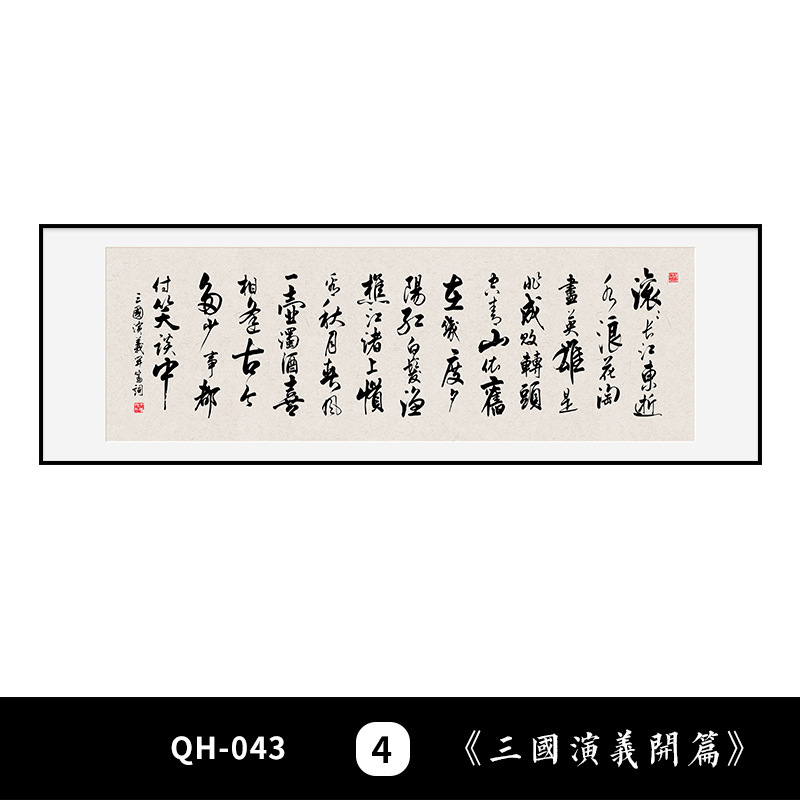 滚〻长江東逝
水浪花淘
盡英雄是
非成敗轉頭
空青山依舊
在幾度夕
陽红白髮漁
樵江渚上慣
看秋月春風
一壺濁酒喜
相逢古今
多少事都
付笑談中
三國演義開篇詞
QH-043
4
《三國演義開篇》